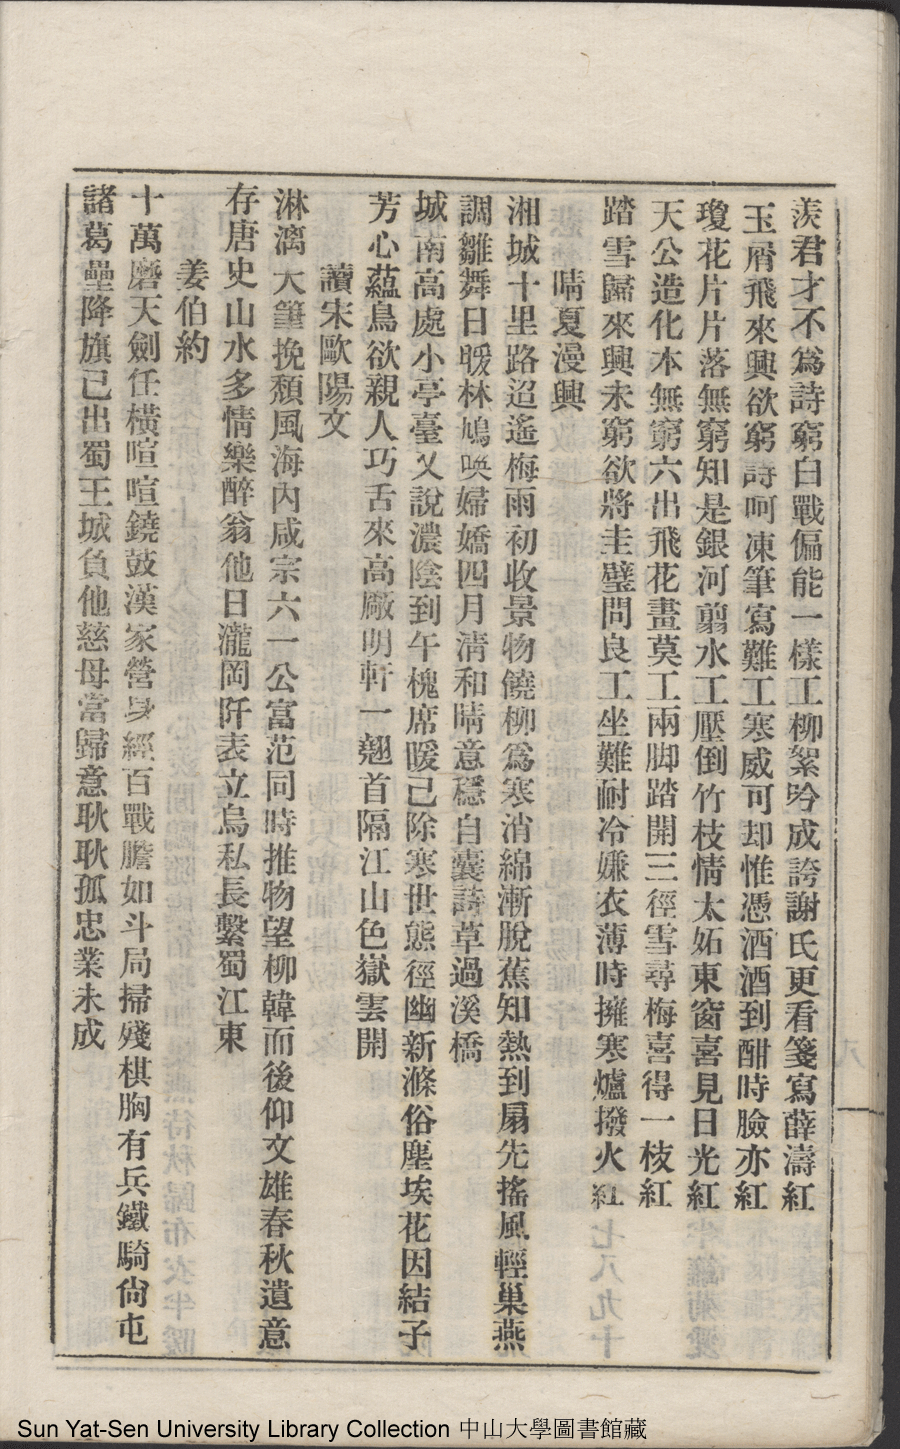 羨君才不爲詩窮白戰偏能一樣工柳絮吟成誇謝氏更看箋寫薛濤紅
玉屑飛來興欲窮詩呵凍筆寫難工寒威可却惟憑酒酒到酣時臉亦紅
瓊花片片落無窮知是銀河翦水工壓倒竹枝情太妬東窗喜見日光紅
天公造化本無窮六出飛花畫莫工兩脚踏開三徑雪尋梅喜得一枝紅
踏雪歸來興未窮欲將圭璧問良工坐難耐冷嫌衣薄時擁寒爐撥火紅
晴夏漫興
湘城十里路迢遙梅雨初收景物饒柳爲寒消綿漸脫蕉知熱到扇先搖風輕巢燕
調雛舞日暖林鳩喚婦嬌四月淸和晴意穩自囊詩草過溪橋
城南高處小亭臺又說濃陰到午槐席暖已除寒世態徑幽新滌俗塵埃花因結子
芳心蘊鳥欲親人巧舌來高厰明軒一翹首隔江山色嶽雲開
讀宋歐陽文
淋漓大筆挽頹風海內咸宗六一公富范同時推物望柳韓而後仰文雄春秋遺意
存唐史山水多情樂醉翁他日瀧岡阡表立烏私長繫蜀江東
姜伯約
十萬磨天劍任橫喧喧鐃鼓漢家營身經百戰膽如斗局掃殘棋胸有兵鐵騎尙屯
諸葛壘降旗已出蜀王城負他慈母當歸意耿耿孤忠業未成
Sun Yat-Sen University Library Collection 中山大學圖書館藏